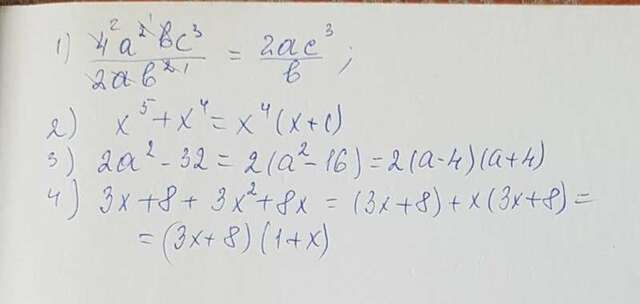 1) 4²a²¹bc³ / 2ab²¹ = 2ac³ / b ;
2) x⁵ + x⁴ = x⁴(x+1)
3) 2a² - 32 = 2(a² - 16) = 2(a-4)(a+4)
4) 3x + 8 + 3x² + 8x = (3x+8) + x(3x+8) =
= (3x+8)(1+x)